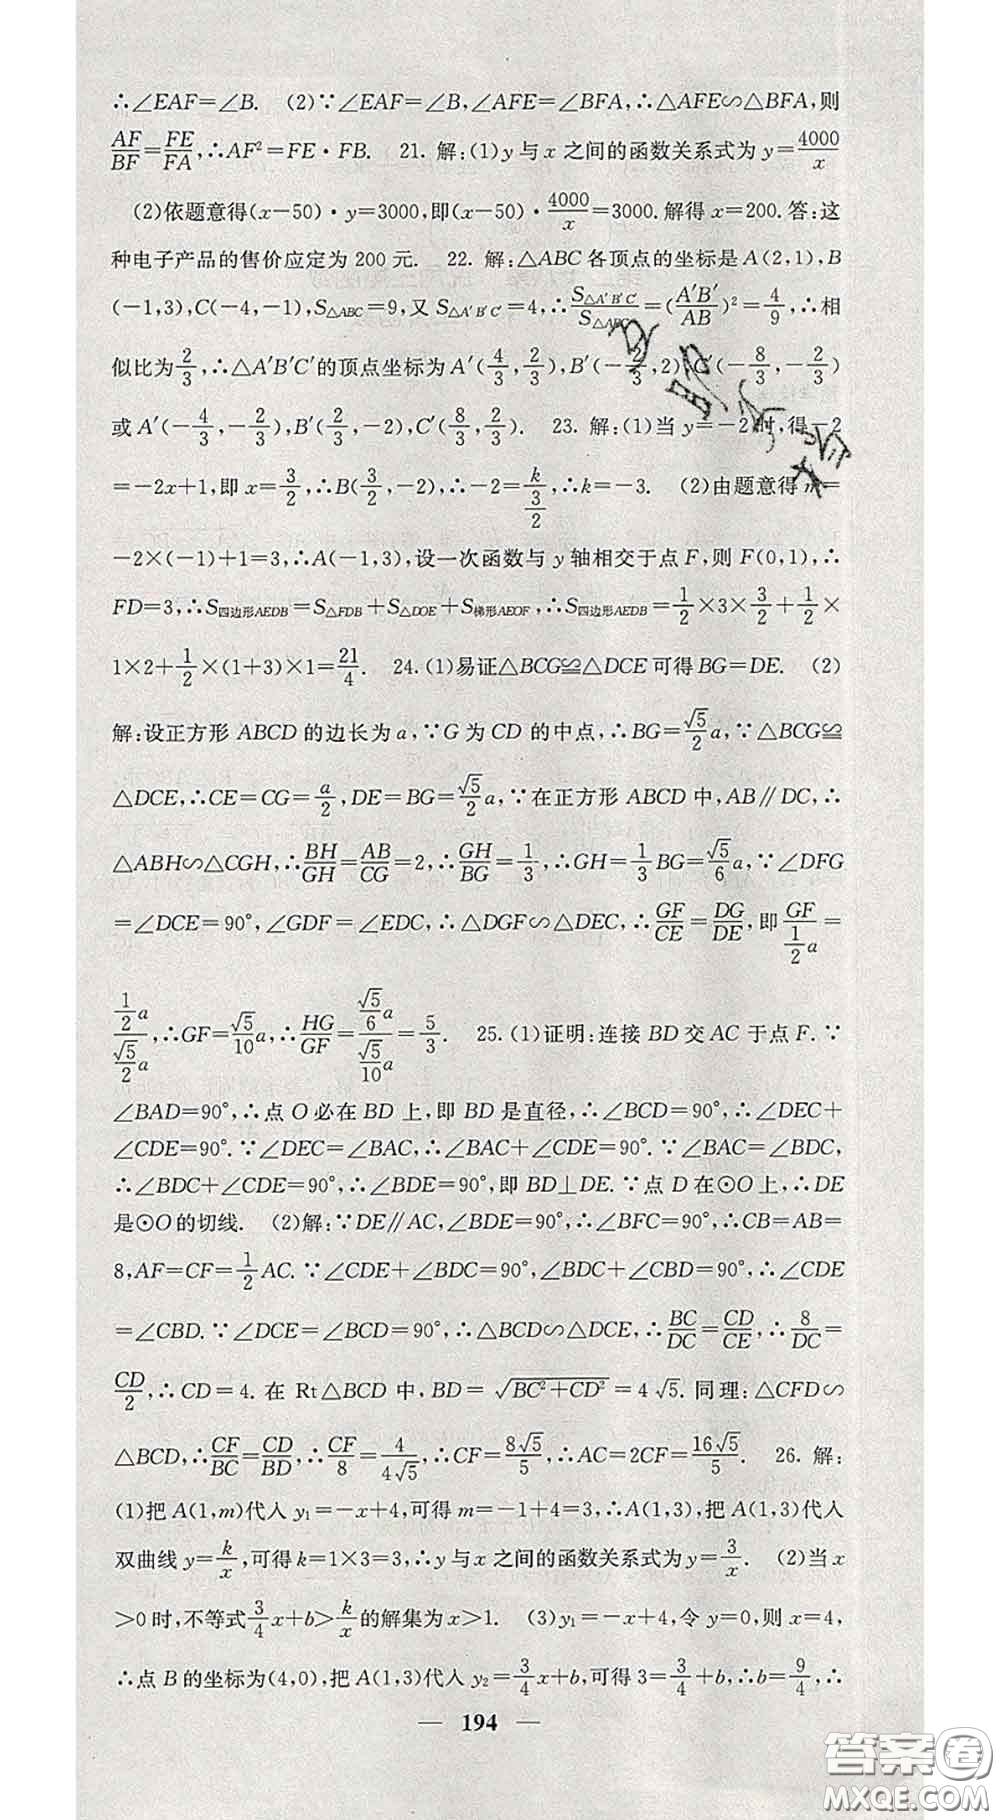 ∴∠EAF=∠B. (2)∵∠EAF=∠B,∠AFE=∠BFA,∴△AFE∽△BFA,则
AF/BF=FE/FA,∴AF²=FE·FB. 21. 解:(1)y与x之间的函数关系式为y=4000/x
(2)依题意得(x−50)·y=3000,即(x−50)·4000/x=3000.解得x=200.答:这
种电子产品的售价应定为200元. 22. 解:△ABC各顶点的坐标是A(2,1),B
(−1,3),C(−4,−1),S△ABC=9,又S△A′B′C′=4,∴S△A′B′C′/S△ABC=(A′B′/AB)²=4/9,∴相
似比为2/3,∴△A′B′C′的顶点坐标为A′(4/3,2/3),B′(−2/3,2),C′(−8/3,−2/3)
或A′(−4/3,−2/3),B′(2/3,−2),C′(8/3,2/3). 23. 解:(1)当y=−2时,得−2
=−2x+1,即x=3/2,∴B(3/2,−2),∴−2=k/(3/2),∴k=−3. (2)由题意得m=
−2×(−1)+1=3,∴A(−1,3),设一次函数与y轴相交于点F,则F(0,1),∴
FD=3,∴S四边形AEDB=S△FDB+S△DOE+S梯形AEOF,∴S四边形AEDB=1/2×3×3/2+1/2×
1×2+1/2×(1+3)×1=21/4. 24. (1)易证△BCG≌△DCE可得BG=DE. (2)
解:设正方形ABCD的边长为a,∵G为CD的中点,∴BG=√5/2a,∵△BCG≌
△DCE,∴CE=CG=a/2,DE=BG=√5/2a,∵在正方形ABCD中,AB∥DC,∴
△ABH∽△CGH,∴BH/GH=AB/CG=2,∴GH/BG=1/3,∴GH=1/3BG=√5/6a,∵∠DFG
=∠DCE=90°,∠GDF=∠EDC,∴△DGF∽△DEC,∴GF/CE=DG/DE,即GF/(1/2a)=
(1/2a)/(√5/2a),∴GF=√5/10a,∴HG/GF=(√5/6a)/(√5/10a)=5/3. 25. (1)证明:连接BD交AC于点F.∵
∠BAD=90°,∴点O必在BD上,即BD是直径,∴∠BCD=90°,∴∠DEC+
∠CDE=90°.∵∠DEC=∠BAC,∴∠BAC+∠CDE=90°.∵∠BAC=∠BDC,
∴∠BDC+∠CDE=90°,∴∠BDE=90°,即BD⊥DE.∵点D在⊙O上,∴DE
是⊙O的切线. (2)解:∵DE∥AC,∠BDE=90°,∴∠BFC=90°,∴CB=AB=
8,AF=CF=1/2AC.∵∠CDE+∠BDC=90°,∠BDC+∠CBD=90°,∴∠CDE
=∠CBD.∵∠DCE=∠BCD=90°,∴△BCD∽△DCE,∴BC/DC=CD/CE,∴8/DC=
CD/2,∴CD=4.在Rt△BCD中,BD=√(BC²+CD²)=4√5.同理:△CFD∽
△BCD,∴CF/BC=CD/BD,∴CF/8=4/4√5,∴CF=8√5/5,∴AC=2CF=16√5/5. 26. 解:
(1)把A(1,m)代入y₁=−x+4,可得m=−1+4=3,∴A(1,3),把A(1,3)代入
双曲线y=k/x,可得k=1×3=3,∴y与x之间的函数关系式为y=3/x. (2)当x
>0时,不等式3/4x+b>k/x的解集为x>1. (3)y₁=−x+4,令y=0,则x=4,
∴点B的坐标为(4,0),把A(1,3)代入y₂=3/4x+b,可得3=3/4+b,∴b=9/4,∴
— 194 —
答案圈
MXQE.COM